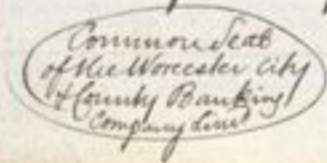 Common Seal
of the Worcester City
& County Banking
Company Lim^d